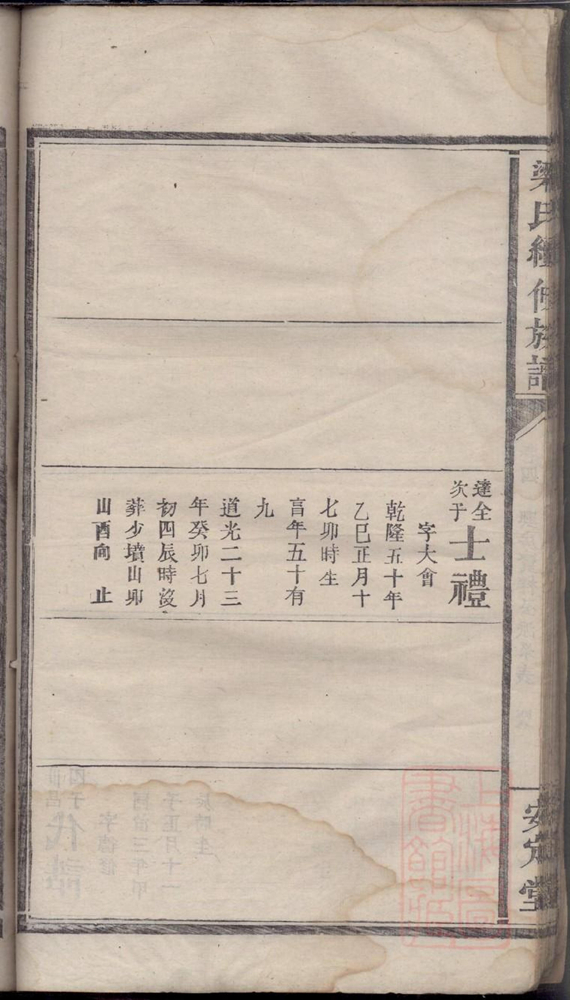 梁氏續修族譜
安定堂
達全
次子
士禮
字大會
乾隆五十年
乙巳正月十
七卯時生
享年五十有
九
道光二十三
年癸卯七月
初四辰時歿
葬少墳山卯
山酉向 止